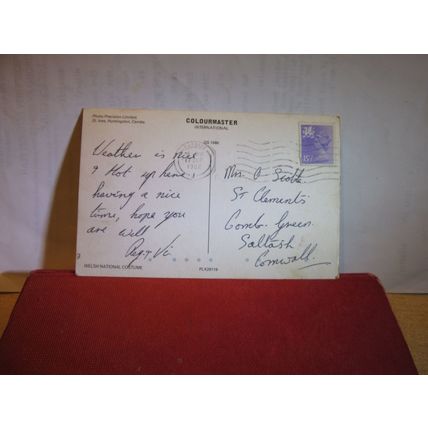 Photo Precision Limited
St. Ives, Huntingdon, Cambs
COLOURMASTER
INTERNATIONAL
Weather is nice
& Hot up here,
having a nice
time, hope you
are well
Reg & Vi
Mrs. O Scott
St Clements
Comb. Green.
Saltash
Cornwall.
15½
WELSH NATIONAL COSTUME
PLX29119